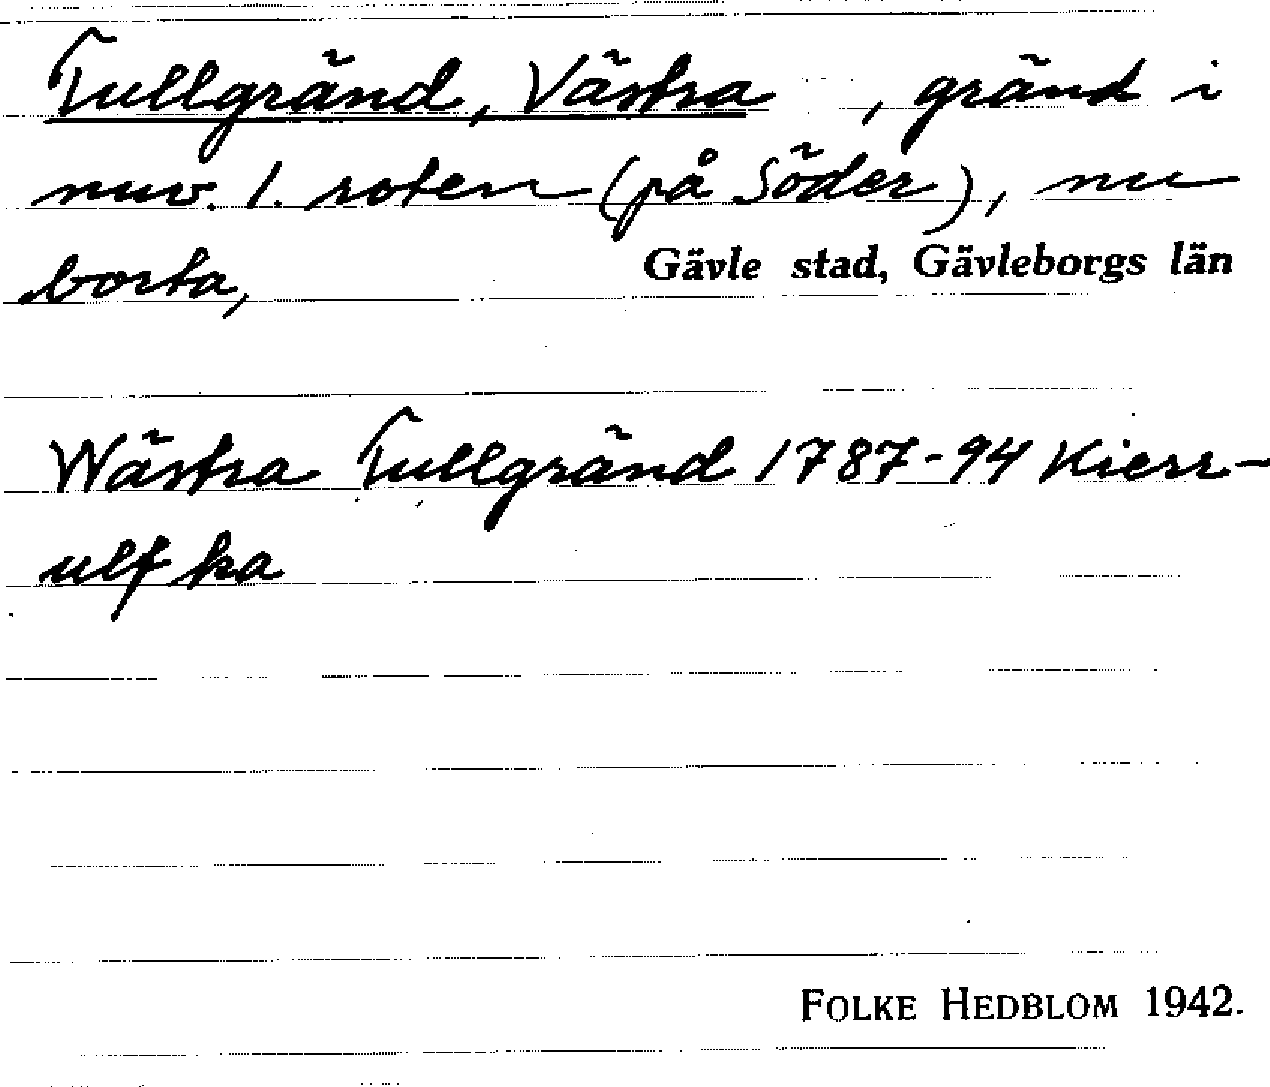 Tullgränd, Västra , gränd i
nuv. 1. roten (på Söder), nu
borta, Gävle stad, Gävleborgs län
Wästra Tullgränd 1787-94 Kierr-
ulf ka
FOLKE HEDBLOM 1942.